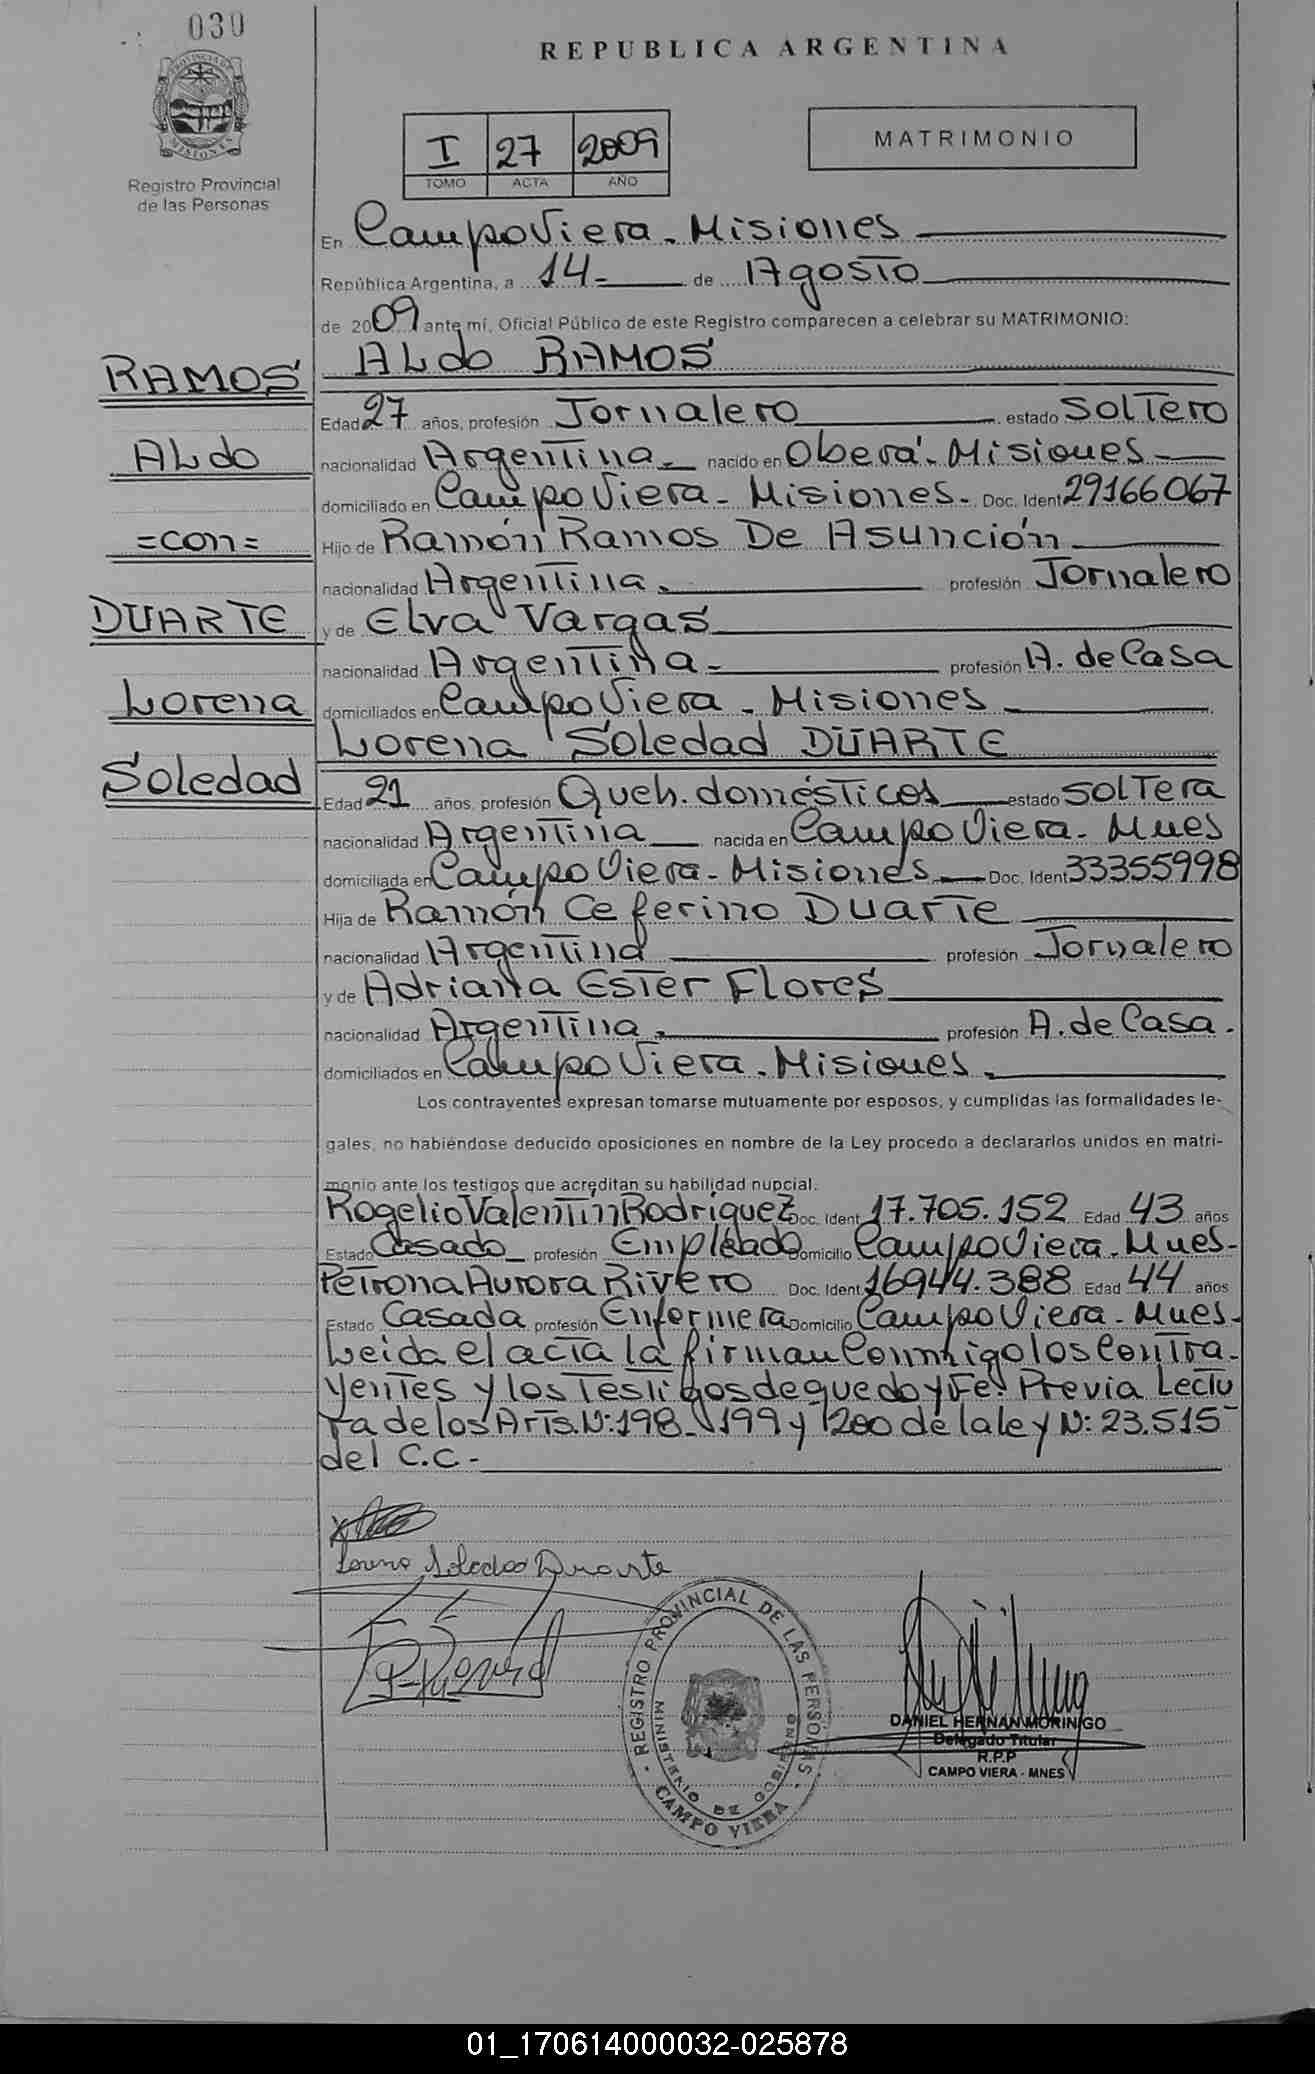 030
REPUBLICA ARGENTINA
PROVINCIA DE MISIONES
Registro Provincial
de las Personas
I 27 2009
TOMO ACTA AÑO
MATRIMONIO
En Campo Viera - Misiones
República Argentina, a 14 - de Agosto
de 2009 ante mí, Oficial Público de este Registro comparecen a celebrar su MATRIMONIO:
RAMOS
Aldo
=con=
DUARTE
Lorena
Soledad
Aldo RAMOS
Edad 27 años, profesión Jornalero estado Soltero
nacionalidad Argentina - nacido en Oberá - Misiones -
domiciliado en Campo Viera - Misiones - Doc. Ident 29166067
Hijo de Ramón Ramos De Asunción
nacionalidad Argentina - profesión Jornalero
y de Elva Vargas
nacionalidad Argentina - profesión A. de Casa
domiciliados en Campo Viera - Misiones
Lorena Soledad DUARTE
Edad 21 años, profesión Queh. domésticos estado soltera
nacionalidad Argentina nacida en Campo Viera - Mnes
domiciliada en Campo Viera - Misiones Doc. Ident 33355998
Hija de Ramón Ceferino Duarte
nacionalidad Argentina profesión Jornalero
y de Adriana Ester Flores
nacionalidad Argentina - profesión A. de Casa.
domiciliados en Campo Viera - Misiones.
Los contrayentes expresan tomarse mutuamente por esposos, y cumplidas las formalidades le-
gales, no habiéndose deducido oposiciones en nombre de la Ley procedo a declararlos unidos en matri-
monio ante los testigos que acreditan su habilidad nupcial.
Rogelio Valentín Rodriguez Doc. Ident 17.705.152 Edad 43 años
Estado Casado profesión Empleado Domicilio Campo Viera - Mnes -
Petrona Aurora Rivero Doc. Ident 16944.388 Edad 44 años
Estado Casada profesión Enfermera Domicilio Campo Viera - Mnes -
Leida el acta la firman Conmigo los Contra-
yentes y los Testigos de que doy Fe. Previa Lectu
ra de los Arts. N: 198 - 199 y 200 de la ley N: 23.515 -
del C.C. -
Lorena Soledad Duarte
REGISTRO PROVINCIAL DE LAS PERSONAS
MINISTERIO DE GOBIERNO
CAMPO VIERA
DANIEL HERNAN MORINIGO
Delegado Titular
R.P.P
CAMPO VIERA - MNES
01_170614000032-025878